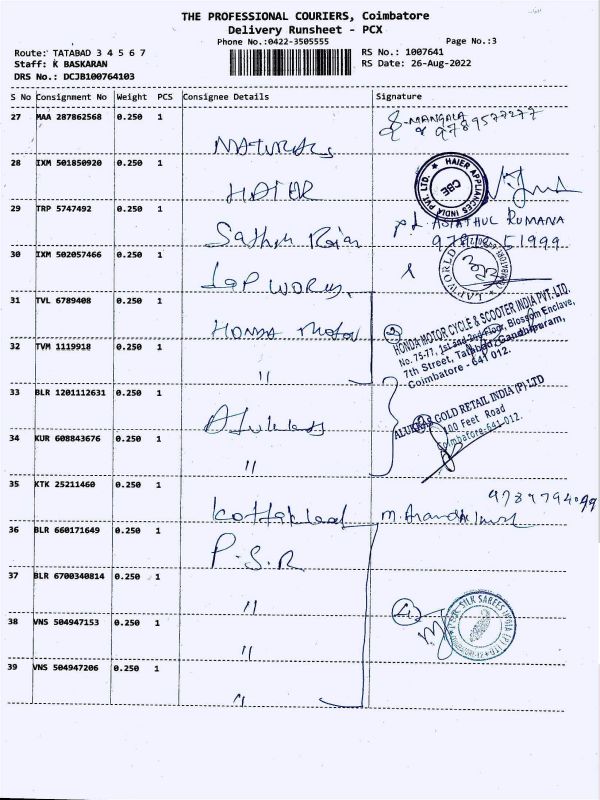 THE PROFESSIONAL COURIERS, Coimbatore
Delivery Runsheet - PCX
Phone No.:0422-3505555
Page No.:3
Route: TATABAD 3 4 5 6 7
RS No.: 1007641
Staff: K BASKARAN
RS Date: 26-Aug-2022
DRS No.: DCJB100764103
S No Consignment No Weight PCS Consignee Details Signature
27 MAA 287862568 0.250 1
MANGALA
9789577277
Naturals
28 IXM 501850920 0.250 1
HAIER
HAIER APPLIANCES INDIA PVT. LTD.
CBE
29 TRP 5747492 0.250 1
Sathya Rajan
ASIATHUL RUMANA
30 IXM 502057466 0.250 1
LAP WORLD
LAPWORLD
31 TVL 6789408 0.250 1
HONDA Motor
2
HONDA MOTOR CYCLE & SCOOTER INDIA PVT. LTD.
No. 75-77, 1st and 2nd Floor, Blossom Enclave,
7th Street, Tatabad, Gandhipuram,
Coimbatore - 641 012.
32 TVM 1119918 0.250 1
"
33 BLR 1201112631 0.250 1
Alukkas
ALUKKAS GOLD RETAIL INDIA (P) LTD
100 Feet Road
Coimbatore-641-012.
34 KUR 608843676 0.250 1
"
35 KTK 25211460 0.250 1
9789794099
36 BLR 660171649 0.250 1
P.S.R
37 BLR 6700340814 0.250 1
"
38 VNS 504947153 0.250 1
"
4
PSR SILK SAREES INDIA (P) LTD
39 VNS 504947206 0.250 1
"